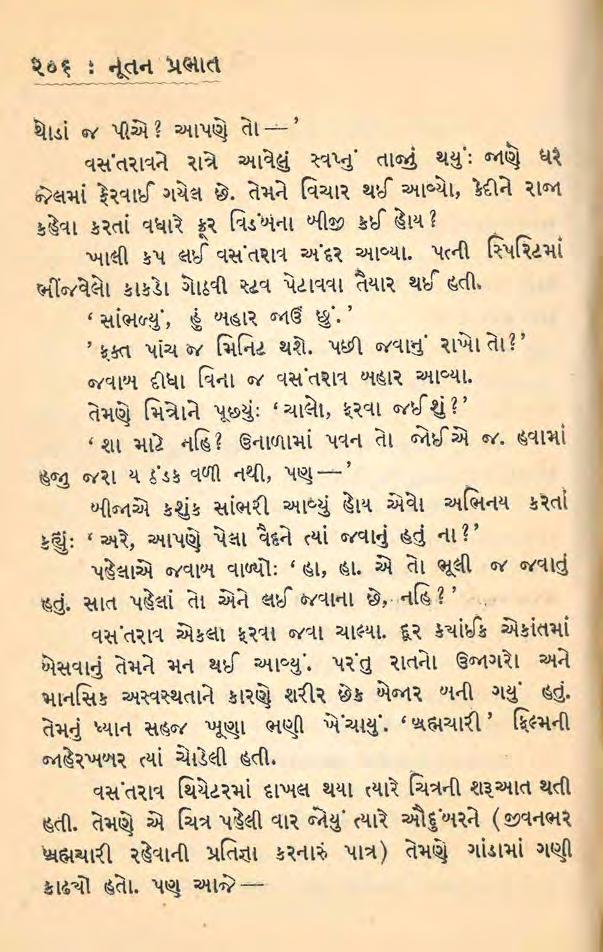 ૨૦૬ : નૂતન પ્રભાત
થોડાં જ પીએ? આપણે તો—’
વસંતરાવને રાત્રે આવેલું સ્વપ્નું તાજું થયું: જાણે ઘર
જેલમાં ફેરવાઈ ગયેલ છે. તેમને વિચાર થઈ આવ્યો, કેદીને રાજા
કહેવા કરતાં વધારે ક્રૂર વિડંબના બીજી કઈ હોય?
ખાલી કપ લઈ વસંતરાવ અંદર આવ્યા. પત્ની સ્પિરિટમાં
ભીંજવેલો કાકડો ગોઠવી સ્ટવ પેટાવવા તૈયાર થઈ હતી.
‘સાંભળ્યું, હું બહાર જાઉં છું.’
’ફક્ત પાંચ જ મિનિટ થશે. પછી જવાનું રાખો તો?’
જવાબ દીધા વિના જ વસંતરાવ બહાર આવ્યા.
તેમણે મિત્રોને પૂછ્યું: ‘ચાલો, ફરવા જઈશું?’
‘શા માટે નહિ? ઉનાળામાં પવન તો જોઈએ જ. હવામાં
હજુ જરા ય ઠંડક વળી નથી, પણ—’
બીજાએ કશુંક સાંભરી આવ્યું હોય એવો અભિનય કરતાં
કહ્યું: ‘અરે, આપણે પેલા વૈદ્યને ત્યાં જવાનું હતું ના?’
પહેલાએ જવાબ વાળ્યો: ‘હા, હા. એ તો ભૂલી જ જવાતું
હતું. સાત પહેલાં તો એને લઈ જવાના છે, નહિ?’
વસંતરાવ એકલા ફરવા જવા ચાલ્યા. દૂર ક્યાંઈક એકાંતમાં
બેસવાનું તેમને મન થઈ આવ્યું. પરંતુ રાતનો ઉજાગરો અને
માનસિક અસ્વસ્થતાને કારણે શરીર છેક બેજાર બની ગયું હતું.
તેમનું ધ્યાન સહજ ખૂણા ભણી ખેંચાયું. ‘બ્રહ્મચારી’ ફિલ્મની
જાહેરખબર ત્યાં ચોડેલી હતી.
વસંતરાવ થિયેટરમાં દાખલ થયા ત્યારે ચિત્રની શરૂઆત થતી
હતી. તેમણે એ ચિત્ર પહેલી વાર જોયું ત્યારે ઔદુંબરને (જીવનભર
બ્રહ્મચારી રહેવાની પ્રતિજ્ઞા કરનારું પાત્ર) તેમણે ગાંડામાં ગણી
કાઢ્યો હતો. પણ આજે—